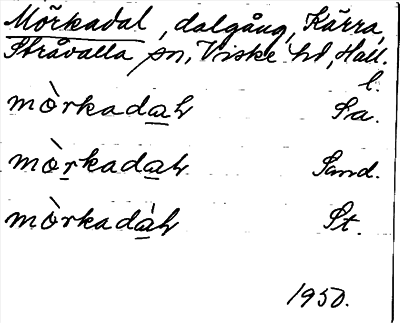 Mörkadal, dalgång, Kärra,
Stråvalla sn, Viske hd, Hall.
l.
mòrkadaɫ Sa.
mòrkadaɫ Sand.
mòrkadàɫ St.
1950.